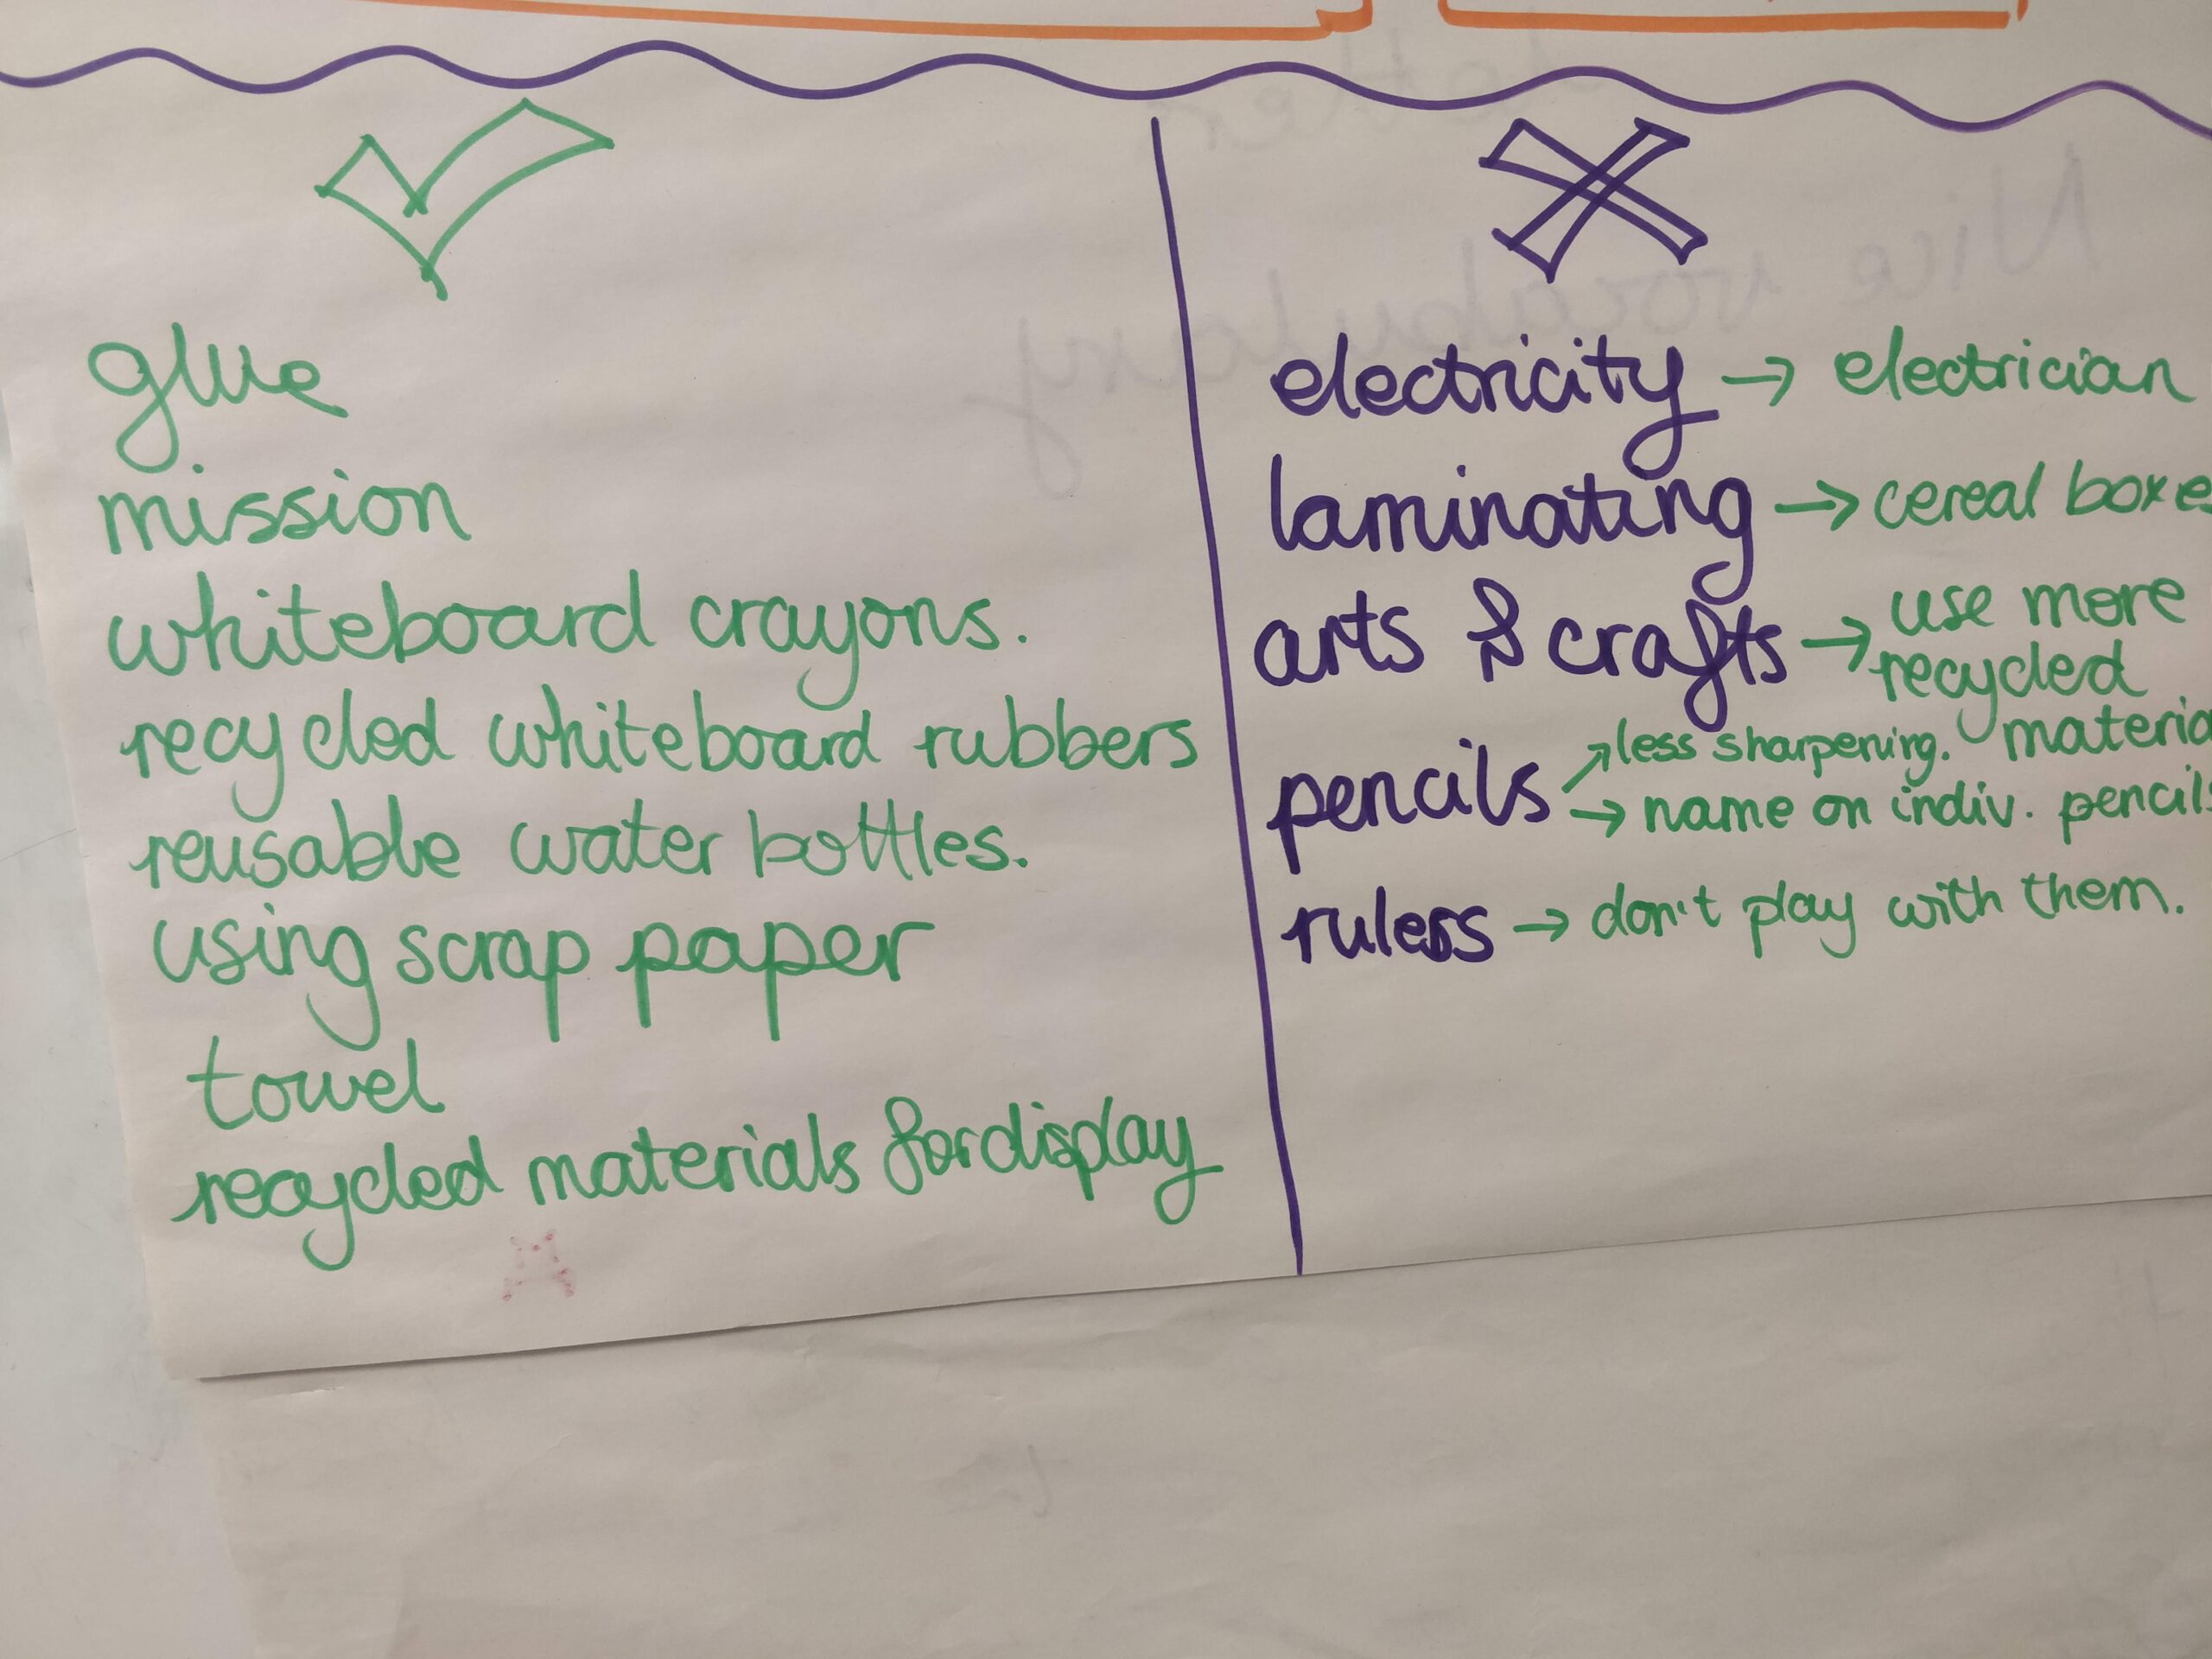 glue
mission
whiteboard crayons.
recycled whiteboard rubbers
reusable water bottles.
using scrap paper
towel
recycled materials for display
electricity → electrician
laminating → cereal boxes
arts & crafts → use more
recycled
materia
pencils ↗ less sharpening.
→ name on indiv. pencils
rulers → don't play with them.
Nice vocabulary